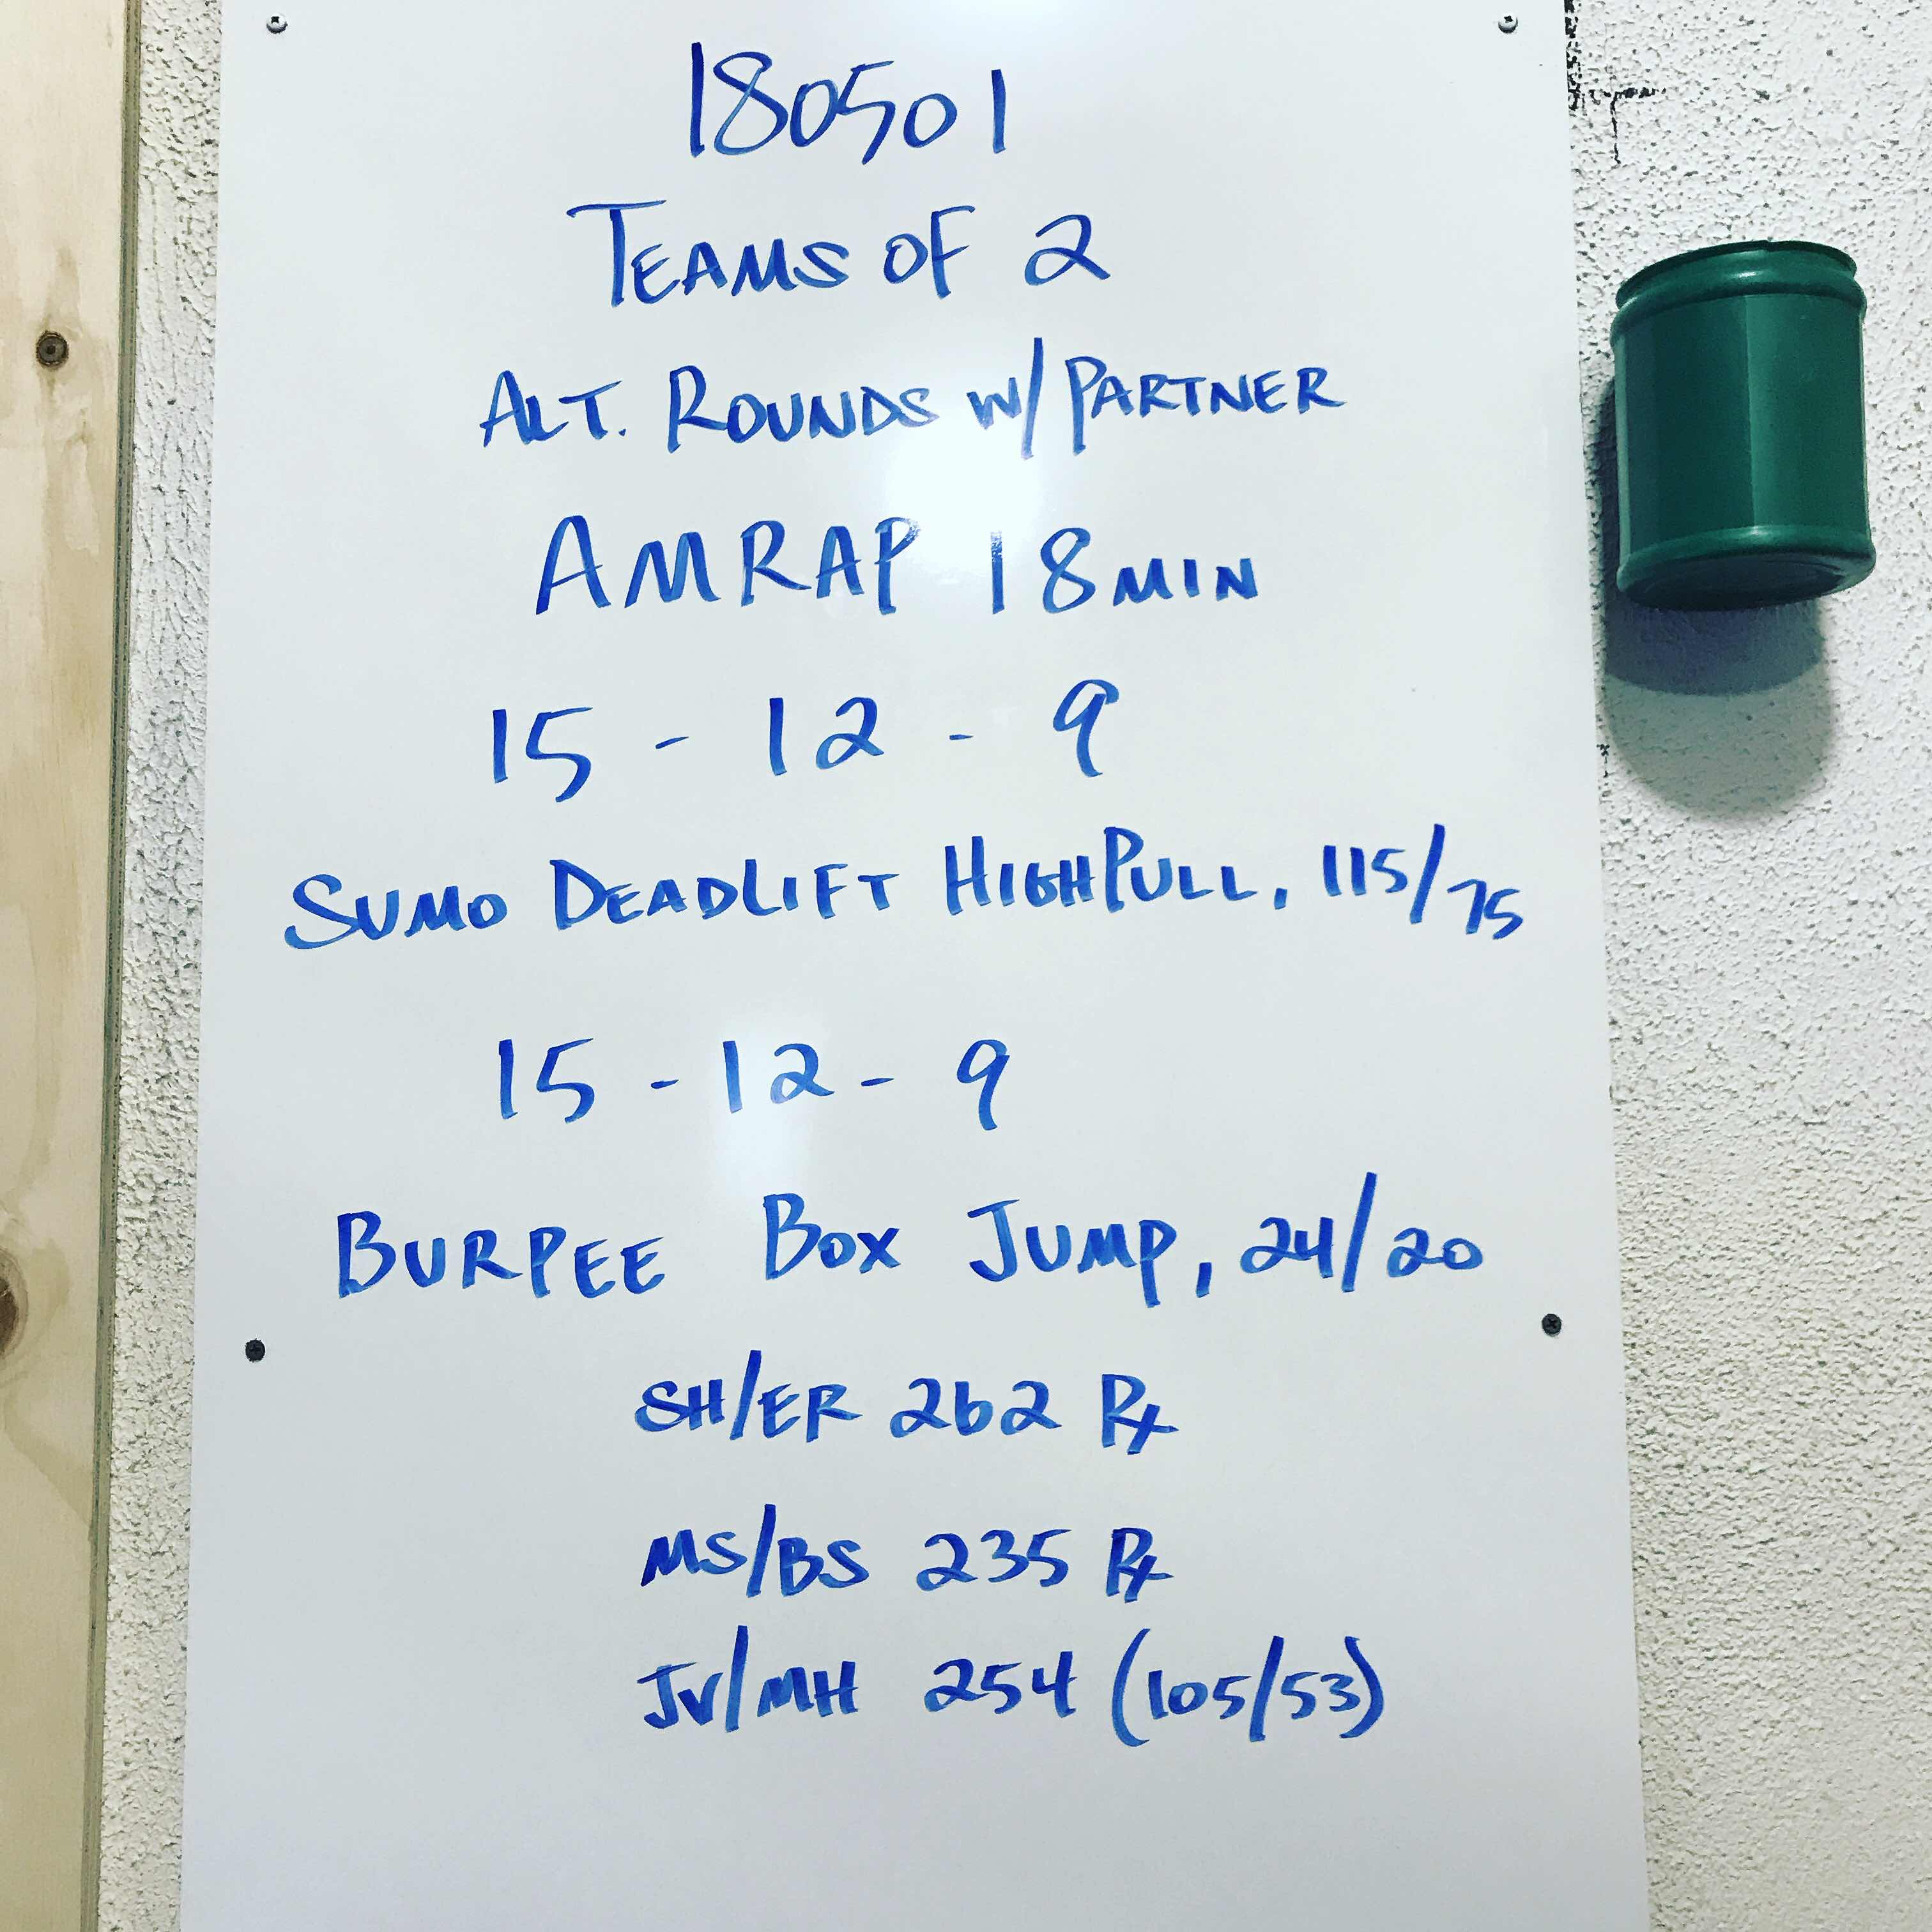 180501
TEAMS OF 2
ALT. ROUNDS W/ PARTNER
AMRAP 18 MIN
15 - 12 - 9
SUMO DEADLIFT HIGHPULL, 115/75
15 - 12 - 9
BURPEE BOX JUMP, 24/20
SH/ER 262 Rx
MS/BS 235 Rx
JV/MH 254 (105/53)